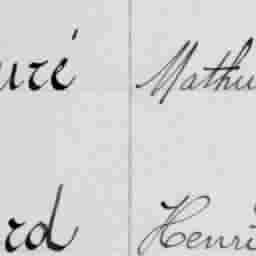 uré Mathu
rd Henri